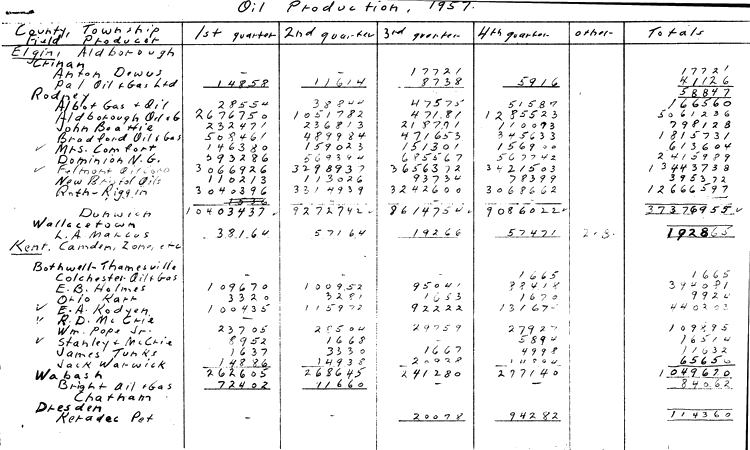 Oil Production, 1957.
County, Township Field Producer 1st quarter 2nd quarter 3rd quarter 4th quarter other Totals
Elgin, Aldborough
Crinan
Anton Dewus - - 17721 - 17721
Pal Oil & Gas Ltd 14858 11614 8738 5916 41126
Rodney 58847
Albot Gas & Oil 28554 38844 47575 51587 166560
Aldborough Oil & G 2676750 1051782 47181 1285523 5061236
John Beattie 232471 236813 218791 110093 798128
Bradford Oil & Gas 508461 489984 471653 345633 1815731
✓ Mrs. Comfort 146380 159023 151301 156900 613604
Dominion N.G. 593286 569394 685567 567742 2415989
✓ Oil Corp 3066926 3298937 3656372 3421503 13443738
New Bristol Oils 110213 113026 93734 78399 395372
Ruth-Riggin 3040396 3314939 3242600 3068662 12666597
Dunwich 10403437 9272742 8614754 9086022 37376955
Wallacetown
L.A. Marcus 38164 57164 19266 57471 192865
Kent, Camden, Zone, etc
Bothwell-Thamesville
Colchester Oil & Gas - - - 1665 1665
E.B. Holmes 109670 100952 95041 88418 394081
Orlo Karr 3320 3281 1653 1670 9924
✓ E.A. Kodyen 100435 115972 92222 131675 440303
" R.D. McCrie - - - -
Wm. Pope Jr. 23705 28504 29759 27927 109895
✓ Stanley & McCrie 8952 1668 - 5894 16514
James Tunks 1637 3330 1667 4998 11632
Jack Warwick 14886 14938 65650
Wabash 262605 268645 241280 277140 1049670
Bright Oil & Gas 72402 11660 - - 84062
Chatham
Dresden
Keradec Pet - - 20078 94282 114360